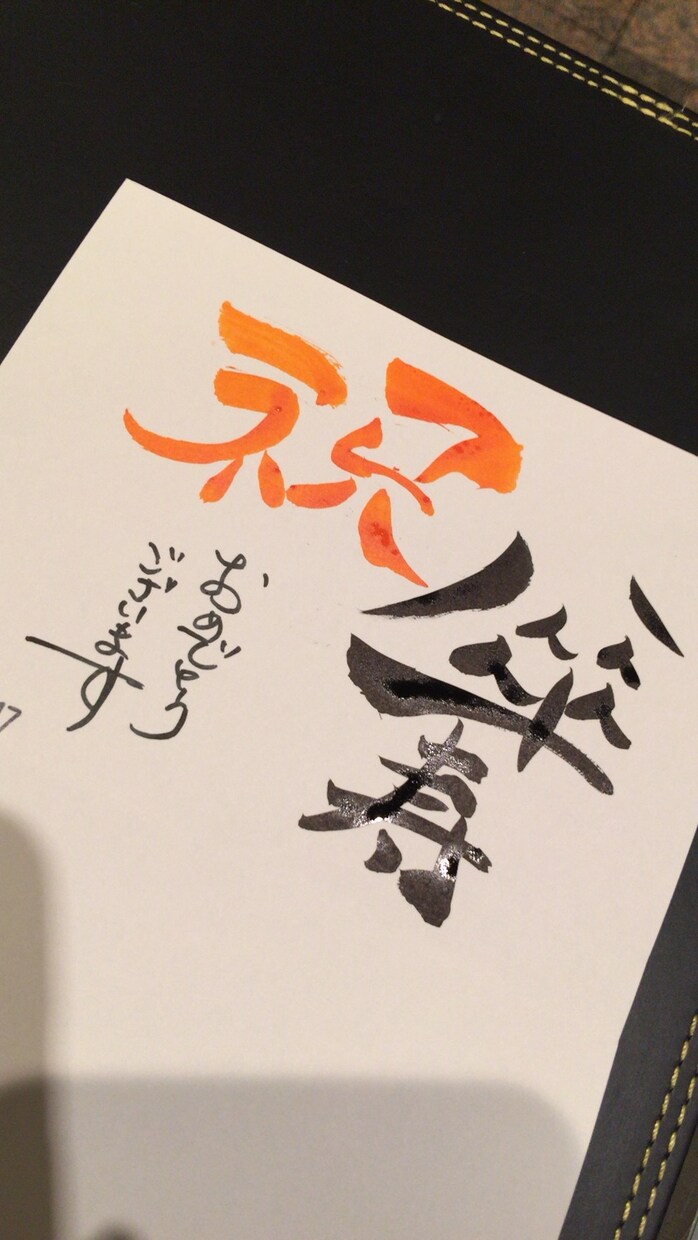 祝
傘寿
おめでとう
ございます